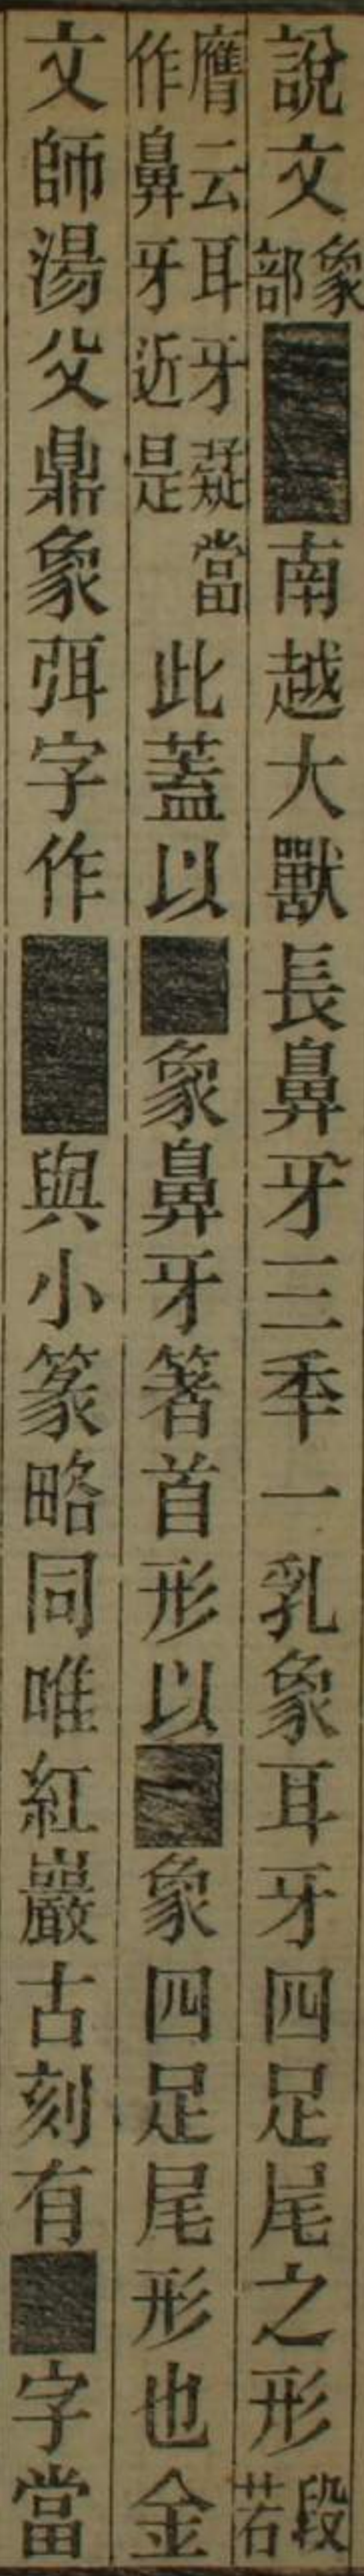 說文象部■■南越大獸長鼻牙三秊一乳象耳牙四足尾之形段若
膺云耳牂疑當作鼻牙近是此蓋以■象鼻牙箸首形以■象四足尾形也金
文師湯父鼎象弭字作■■與小篆略同唯紅巖古刻有■字當